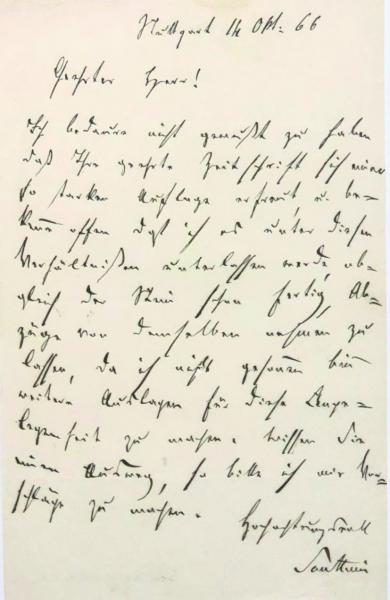 Stuttgart 14 Okt. 66
Geehrter Herr!
Ich bedaure nicht gewußt zu haben
daß Ihre geehrte Zeitschrift sich einer
so starken Auflage erfreut, u. be-
kenne offen daß ich es unter diesen
Verhältnißen unterlassen werde, ob-
gleich der Stein schon fertig, Ab-
züge von demselben nehmen zu
lassen, da ich nicht gesonnen bin
weitere Auslagen für diese Ange-
legenheit zu machen. Wissen Sie
einen Ausweg, so bitte ich mir Vor-
schläge zu machen.
Hochachtungsvoll